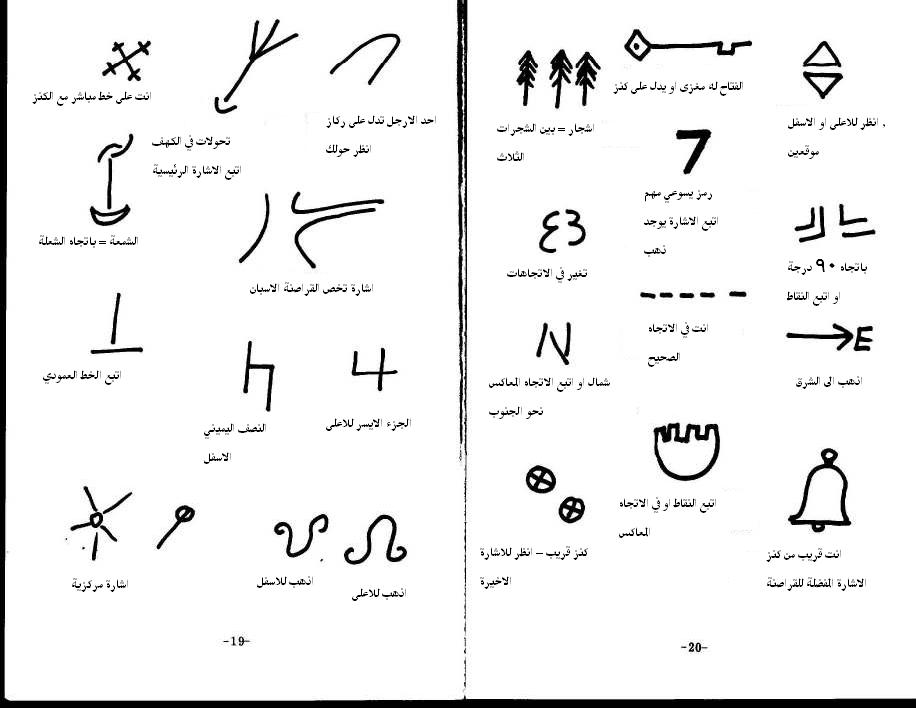 انت على خط مباشر مع الكنز
تحولات في الكهف
اتبع الاشارة الرئيسية
احد الارجل تدل على ركاز
انظر حولك
الشمعة = باتجاه الشعلة
اشارة تخص القراصنة الاسبان
اتبع الخط العمودي
النصف اليميني
الاسفل
الجزء الايسر للاعلى
اشارة مركزية
اذهب للاسفل
اذهب للاعلى
-19-
اشجار = بين الشجرات
الثلاث
الفتاح له مغزى او يدل على كنز
. انظر للاعلى او الاسفل
موقعين
7
رمز يسوعي مهم
اتبع الاشارة يوجد
ذهب
تغير في الاتجاهات
باتجاه ٩٠ درجة
او اتبع النقاط
انت في الاتجاه
الصحيح
N
شمال او اتبع الاتجاه المعاكس
نحو الجنوب
E
اذهب الى الشرق
اتبع النقاط او في الاتجاه
المعاكس
كنز قريب - انظر للاشارة
الاخيرة
انت قريب من كنز
الاشارة المفضلة للقراصنة
-20-